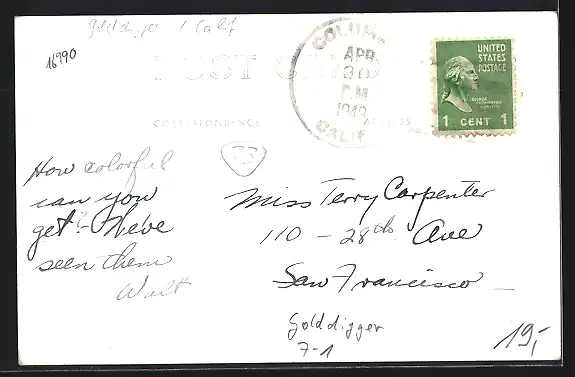 Golddigger / Calf
16990
POST CARD
CORRESPONDENCE
ADDRESS
COLUM
APR
30
P.M.
1949
CALIF
UNITED
STATES
POSTAGE
GEORGE
WASHINGTON
1 CENT 1
73
How colorful
can you
get? We've
seen them
Walt
Miss Terry Carpenter
110 - 28th Ave
San Francisco
Golddigger
7-1
19,-